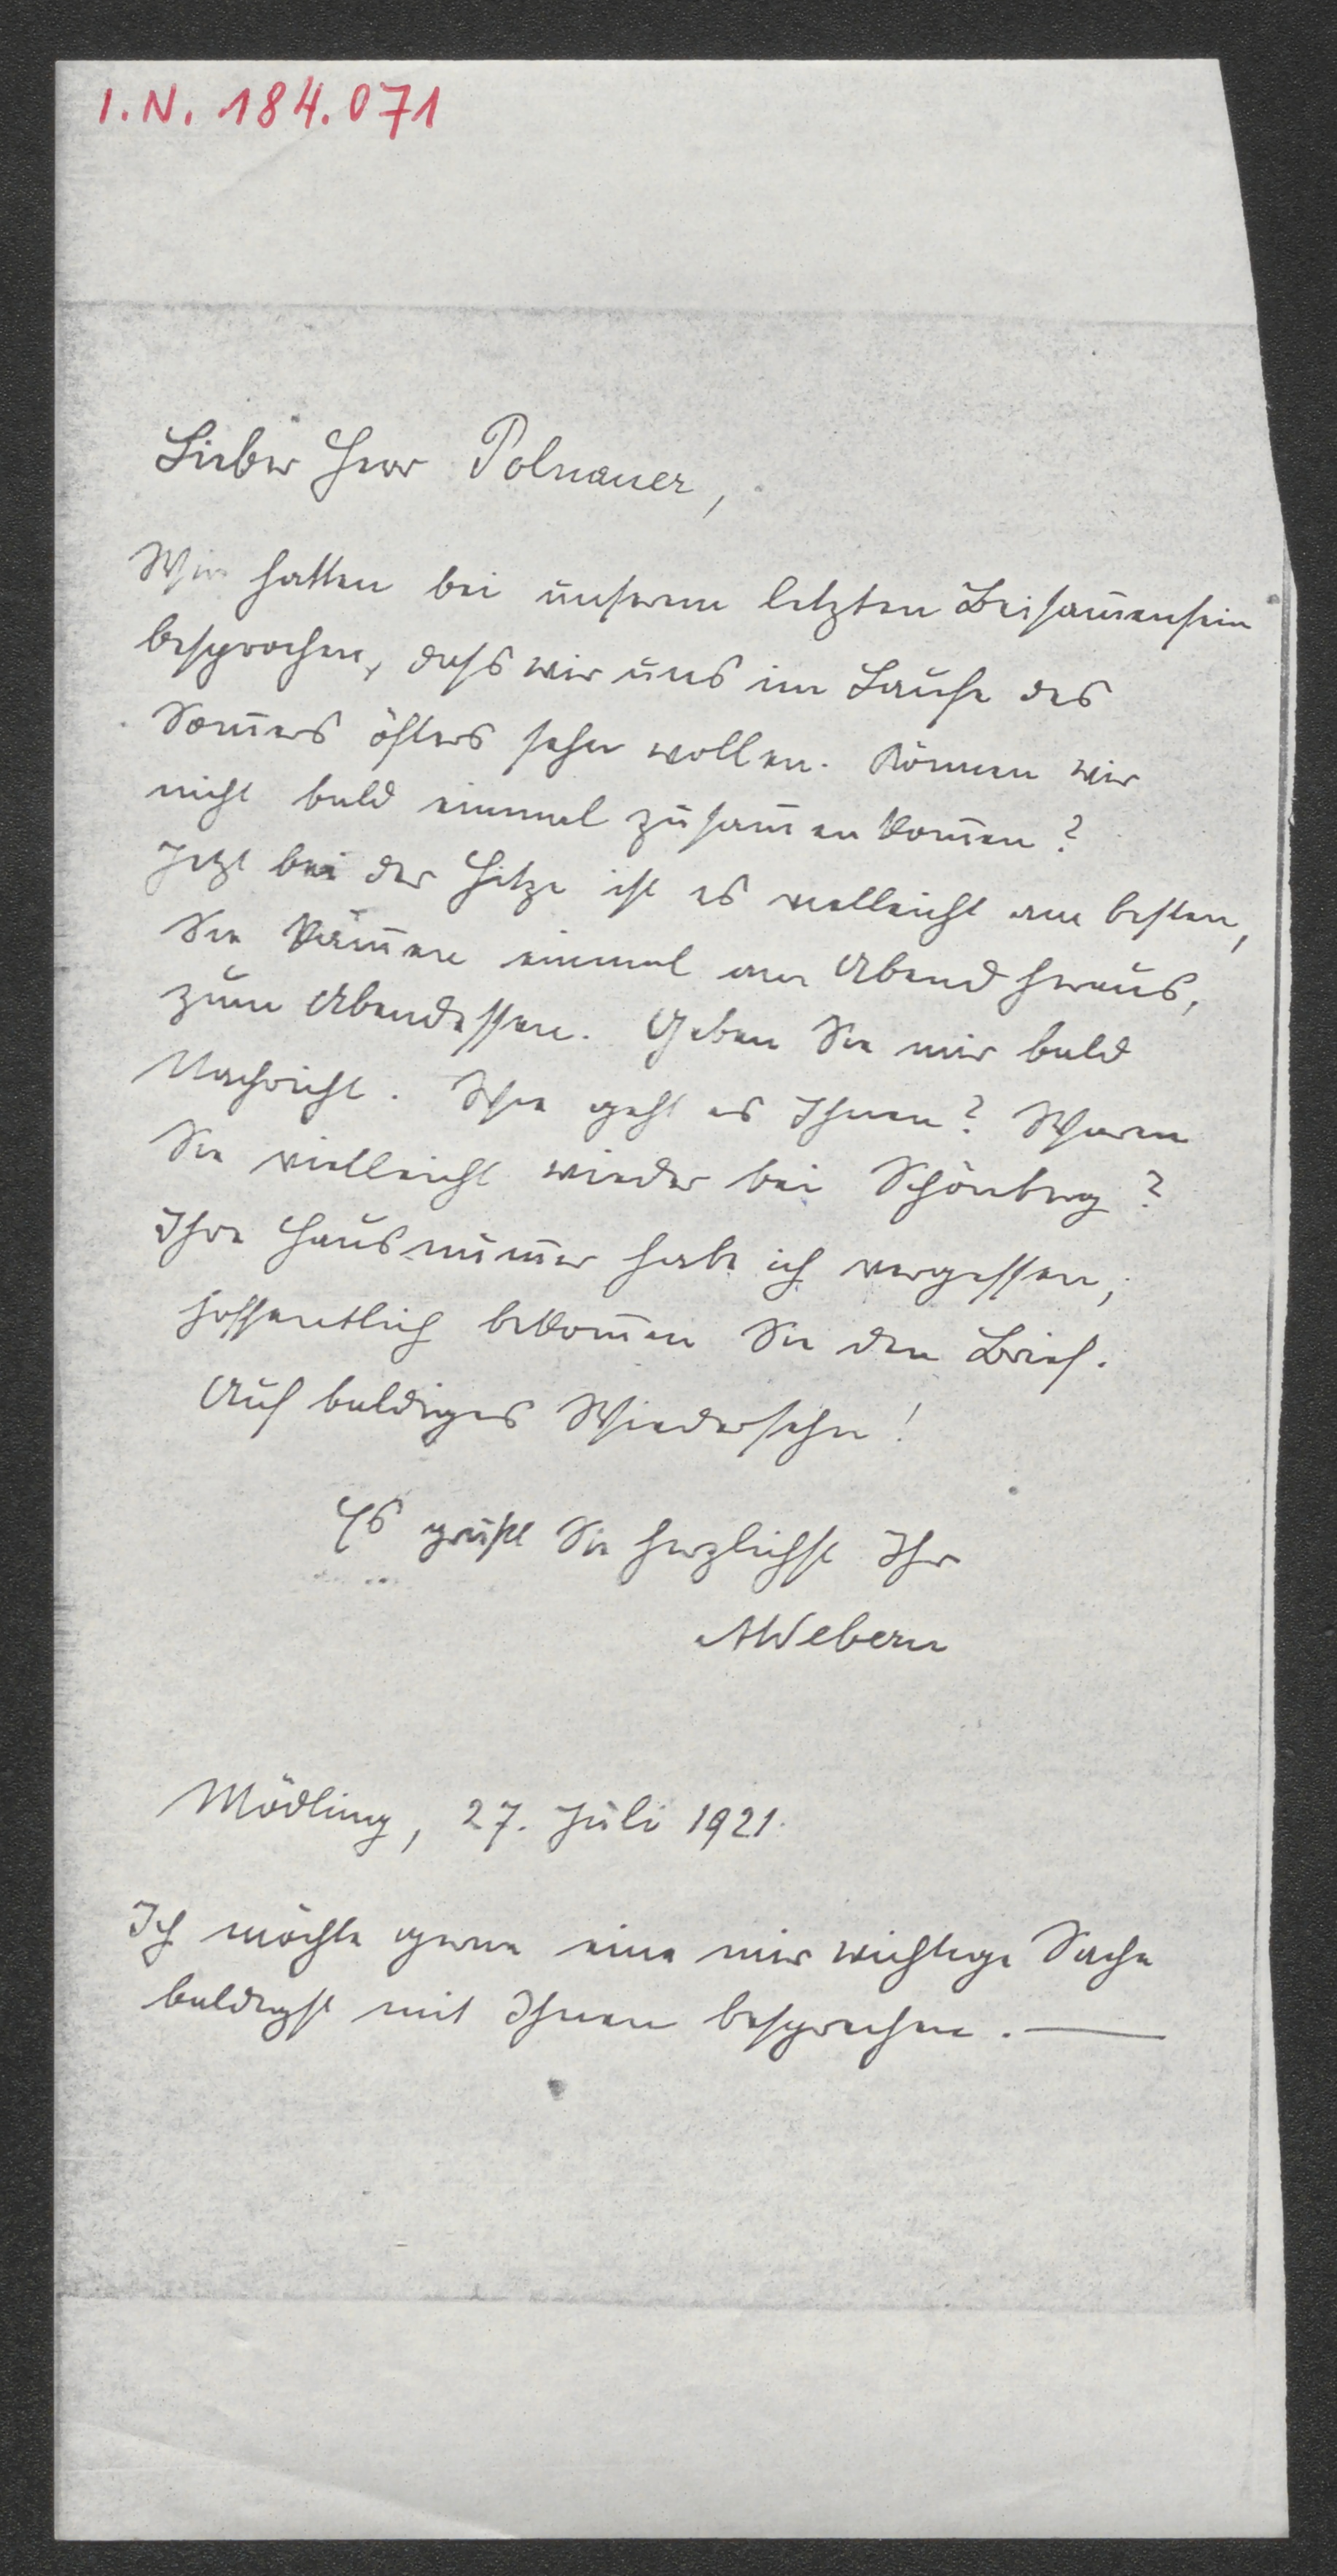 I.N. 184.071
Lieber Herr Polnauer,
Wir hatten bei unserem letzten Beisam̅ensein
besprochen, dass wir uns im Laufe des
Som̅ers öfters sehn wollen. Können wir
nicht bald einmal zusam̅en kom̅en?
Jetzt bei der Hitze ist es vielleicht am besten,
Sie käm̅en einmal am Abend heraus,
zum Abendessen. Geben Sie mir bald
Nachricht. Wie geht es Ihnen? Waren
Sie vielleicht wieder bei Schönberg?
Ihre Hausnum̅er habe ich vergessen,
hoffentlich bekom̅en Sie den Brief.
Auf baldiges Wiedersehn!
Es grüßt Sie herzlichst Ihr
AWebern
Mödling, 27. Juli 1921.
Ich möchte gerne eine mir wichtige Sache
baldigst mit Ihnen besprechen. —